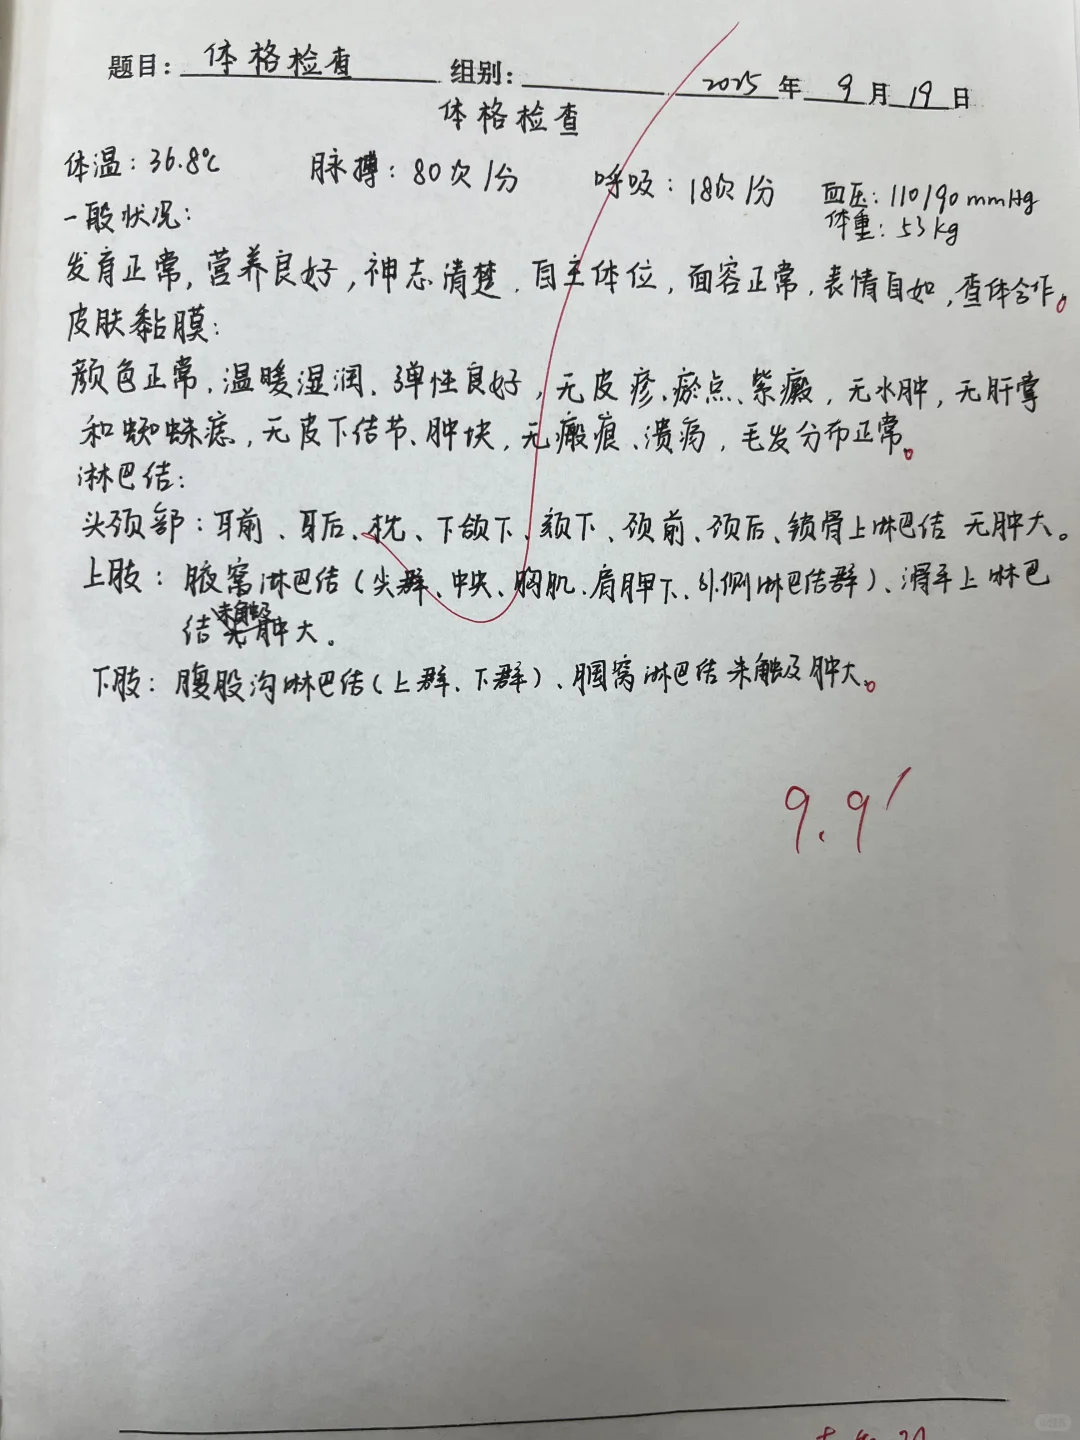 题目: 体格检查 组别: 2025年9月19日
体格检查
体温: 36.8℃ 脉搏: 80次/分 呼吸: 18次/分 血压: 110/90mmHg
体重: 53kg
一般状况:
发育正常, 营养良好, 神志清楚, 自主体位, 面容正常, 表情自如, 查体合作。
皮肤黏膜:
颜色正常、温暖湿润、弹性良好, 无皮疹、瘀点、紫癜, 无水肿, 无肝掌
和蜘蛛痣, 无皮下结节、肿块, 无瘢痕、溃疡, 毛发分布正常。
淋巴结:
头颈部: 耳前、耳后、枕、下颌下、颏下、颈前、颈后、锁骨上淋巴结 无肿大。
上肢: 腋窝淋巴结(尖群、中央、胸肌、肩胛下、外侧淋巴结群)、滑车上淋巴
结 肿大。
下肢: 腹股沟淋巴结(上群、下群)、腘窝淋巴结未触及肿大。
9.9